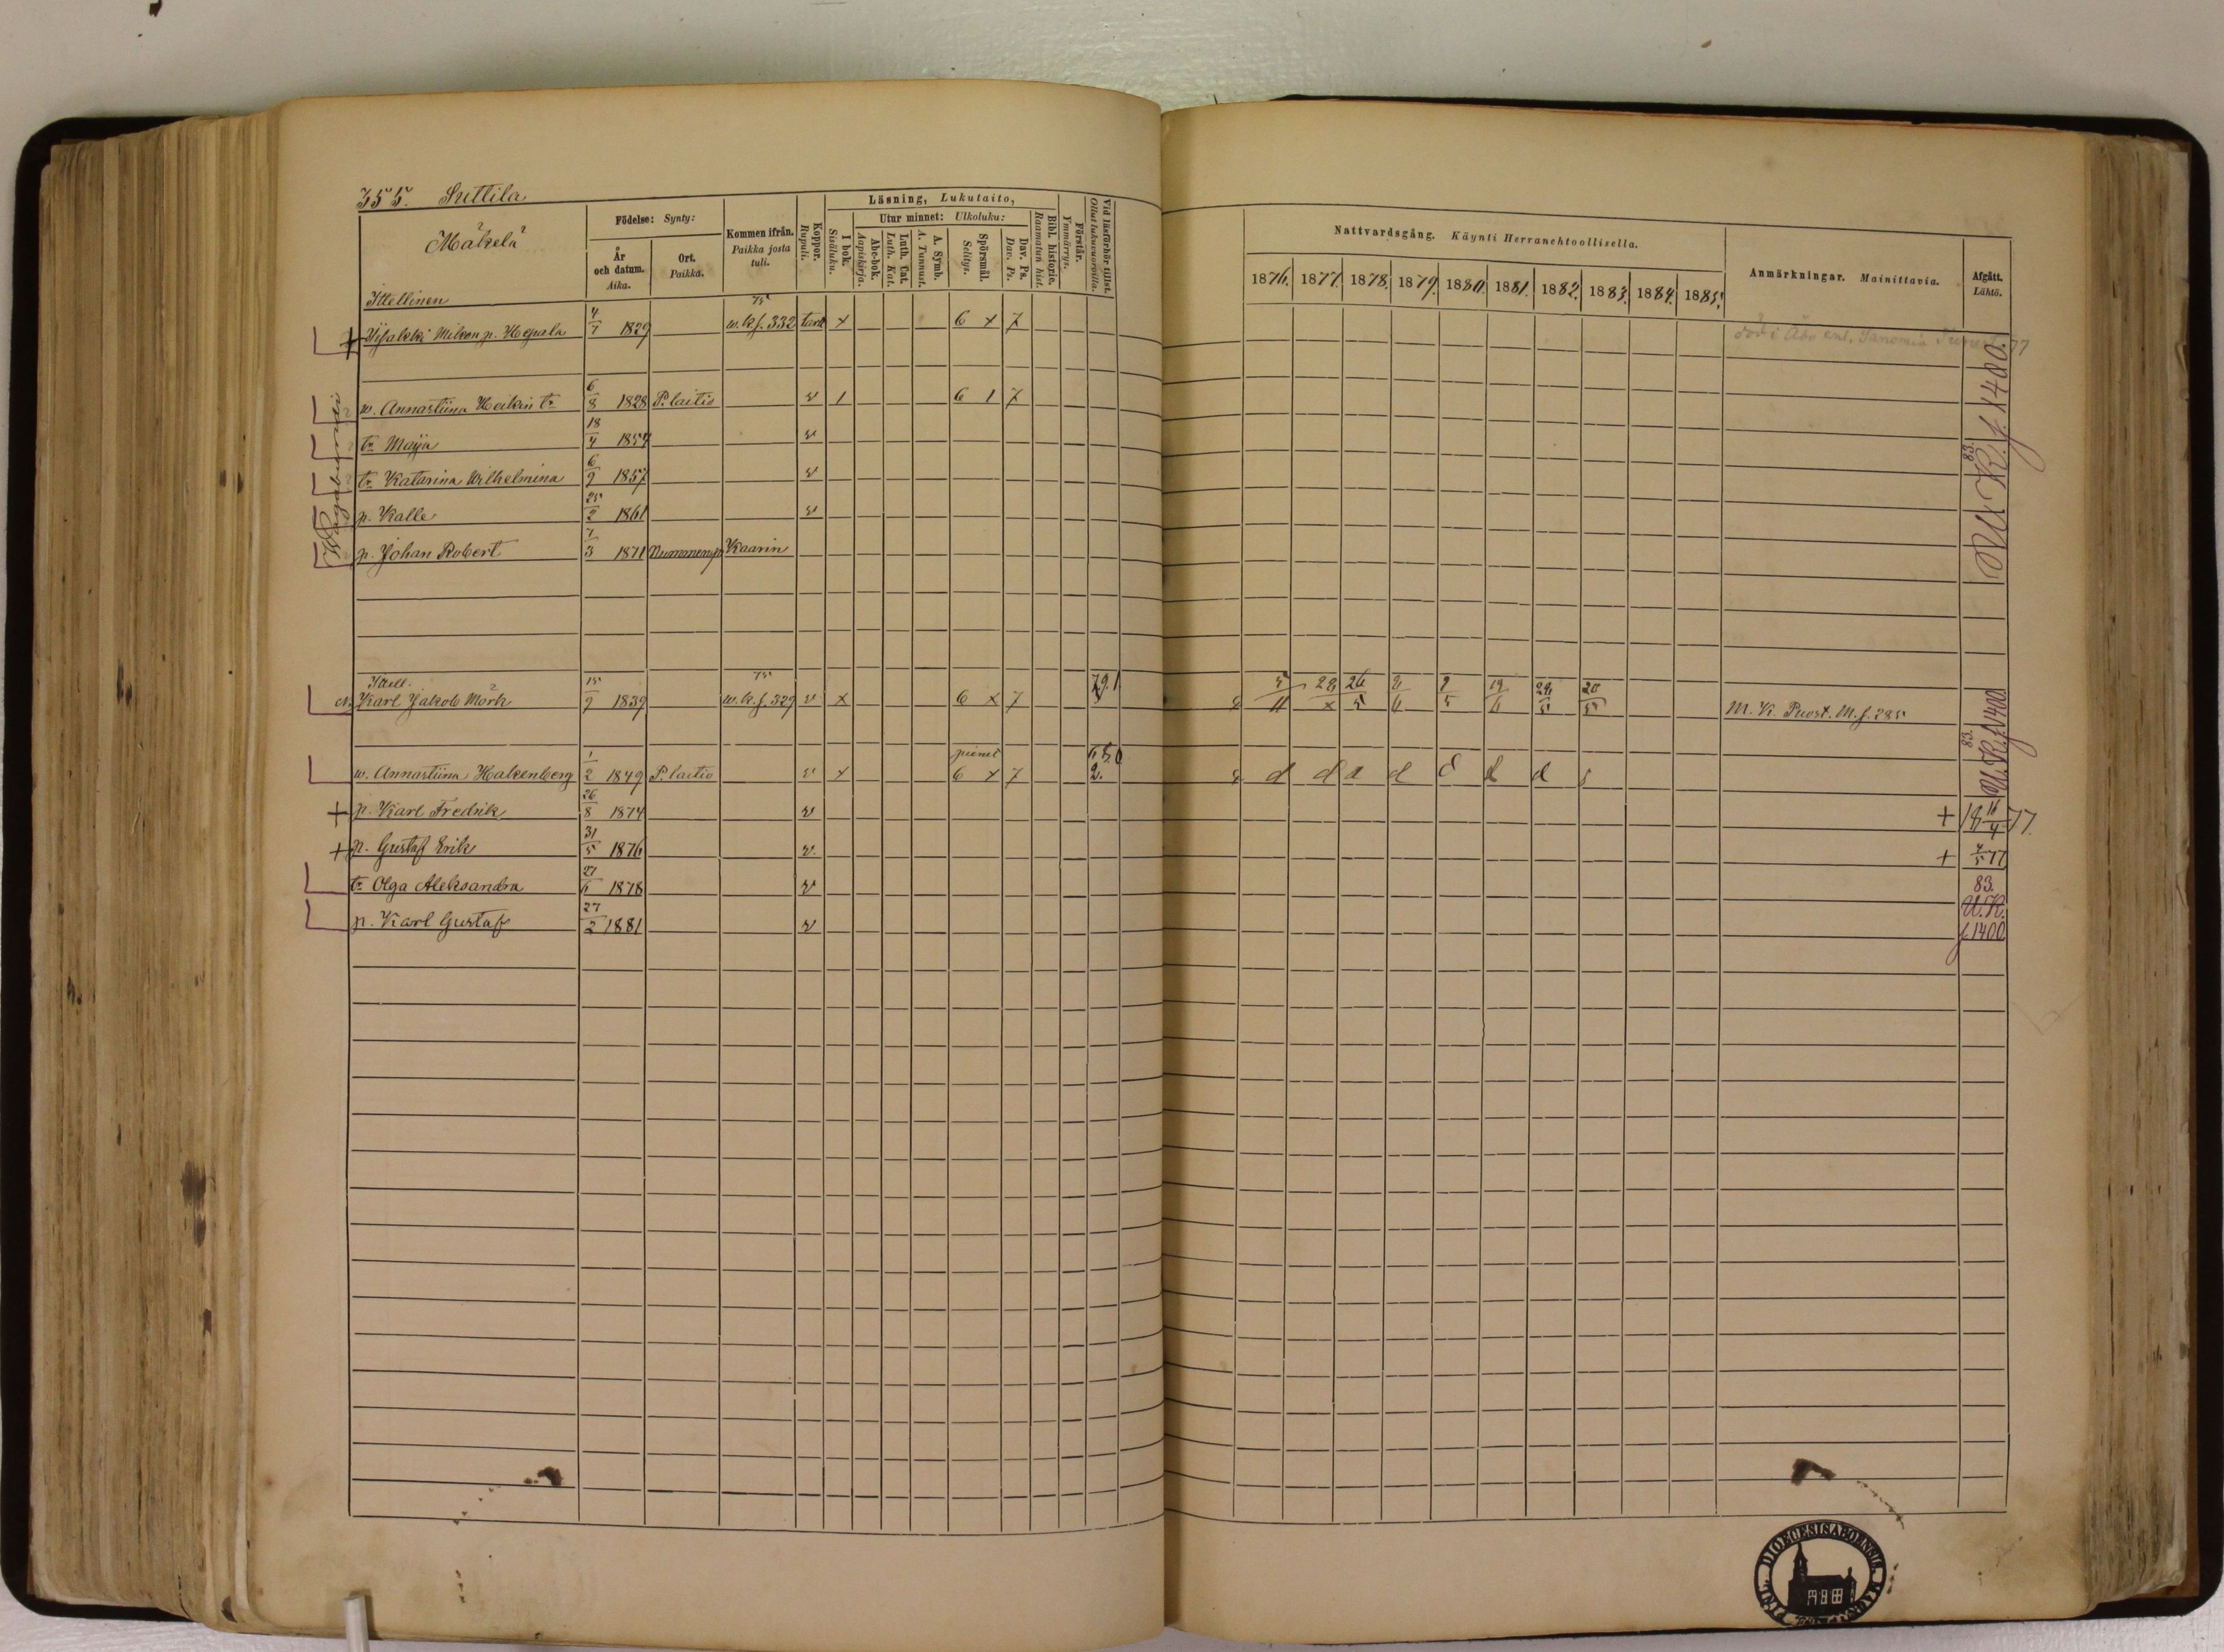 355. Suttila
Mäkelä
Födelse: Synty:
År och datum. Aika.
Ort. Paikka.
Kommen ifrån. Paikka josta tuli.
Koppor. Rupuli.
Läsning, Lukutaito,
I bok. Sisäluku.
Utur minnet: Ulkoluku:
Abc-bok. Aapiskirja.
Luth. Cat. Luth. Kat.
A. Symb. A. Tunnust.
Spörsmål. Selitys.
Dav. Ps. Dav. Ps.
Bibl. historie. Raamatun hist.
Förstår. Ymmärrys.
Vid läsförhör tillst. Ollut lukuvuoroilla.
Nattvardsgång. Käynti Herranehtoollisella.
1876. 1877. 1878. 1879. 1880. 1881. 1882. 1883. 1884. 1885.
Anmärkningar. Mainittavia.
Afgått. Lähtö.
Ittellinen
75
+ Iisakki Mikon p. Hepala 4/7 1829 w. k. s. 332 6 x 7
77
w. Annastiina Heikin tr 6/8 1828 P. laitio r 1 6 1 7
tr Maija 18/4 1854 r
tr Katarina Wilhelmina 6/9 1857 r
p. Kalle 25/2 1861 r
p. Johan Robert 7/3 1871 Nummenp Kaarin
83.
U. K. f. 1400.
Ittell.
75
Karl Jakob Mörk 15/9 1839 w. k. s. 329 r x 6 x 7 79.1 5/11 28/x 26/5 19/6 28/5 20/5 M. K. f. 285
83.
U. K. f. 1400.
pienet
w. Annastiina Hakenberg 1/2 1849 P. laitio r x 6 x 7 2. d d d d d d d
+ p. Karl Fredrik 26/8 1874 r + 16/4 77.
+ p. Gustaf Erik 31/5 1876 r. + 4/5 77
tr Olga Aleksandra 27/6 1878 r 83.
U. K.
p. Karl Gustaf 27/2 1881 r f. 1400